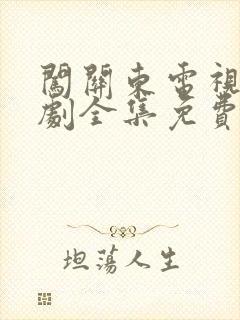 闖關東電視
劇全集免費
坦蕩人生